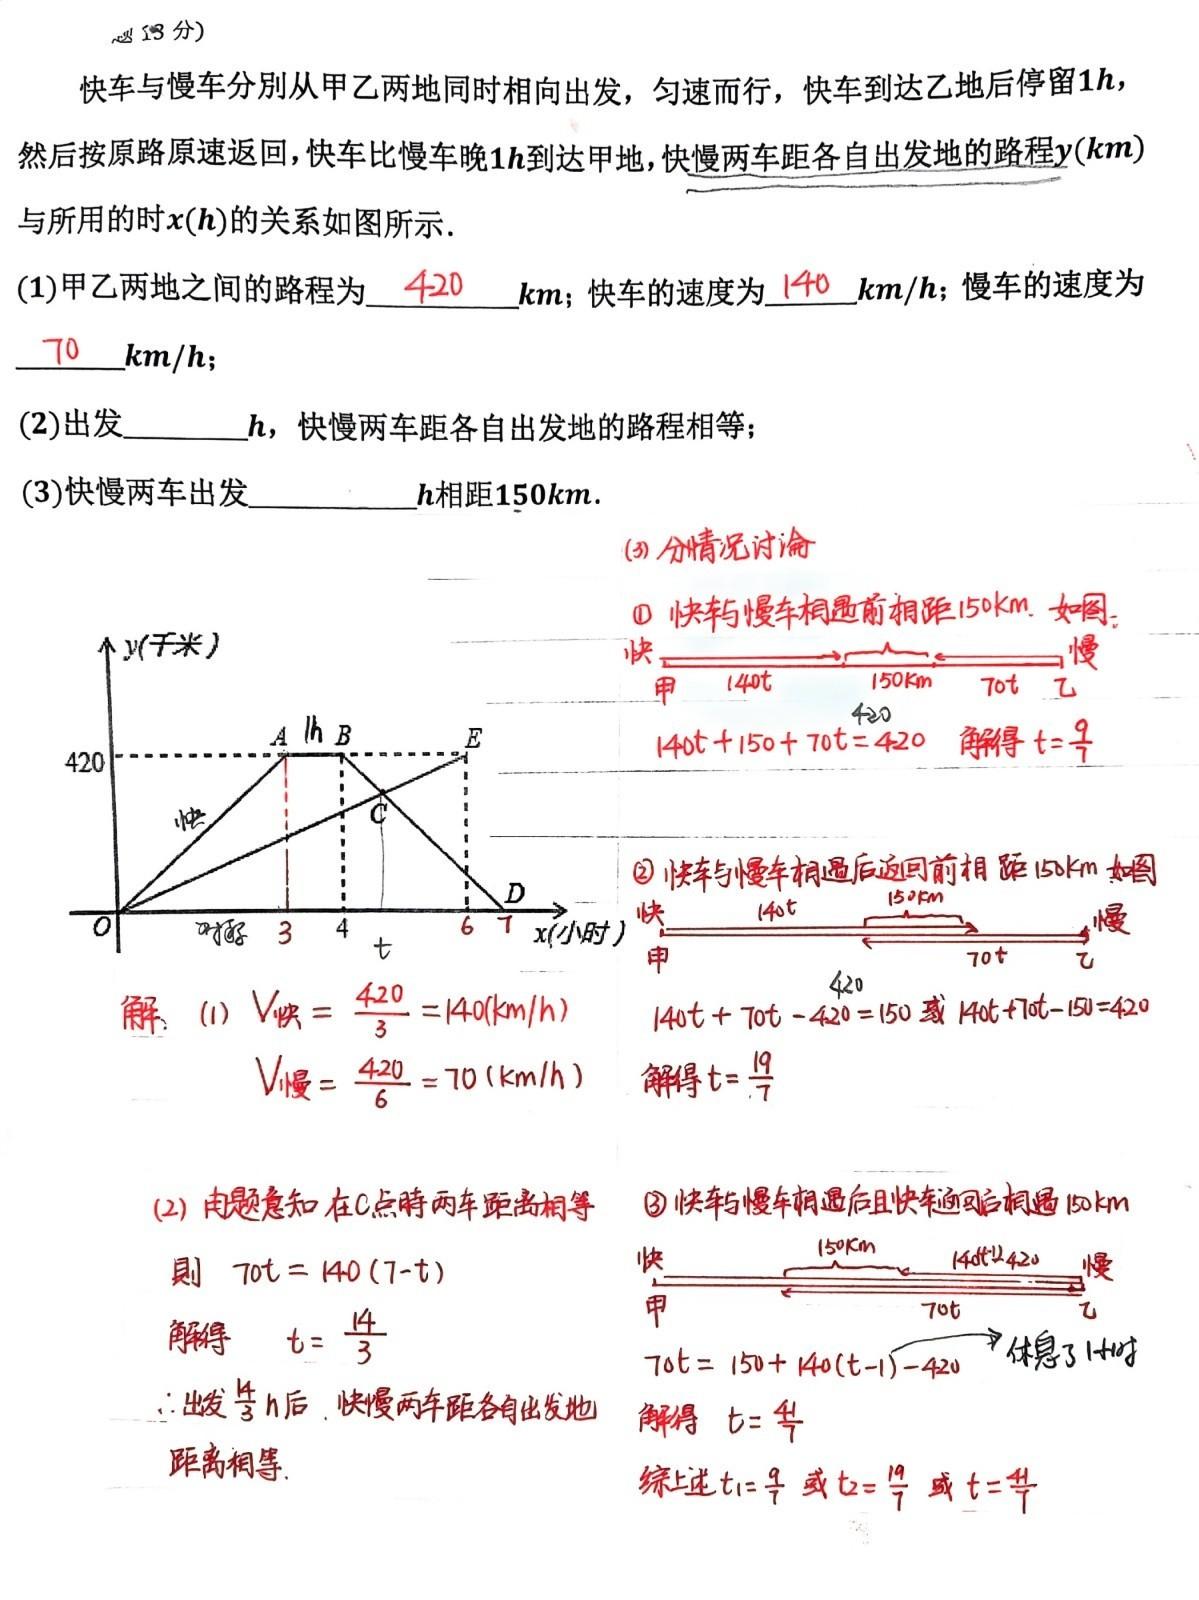 13 分)
快车与慢车分别从甲乙两地同时相向出发，匀速而行，快车到达乙地后停留1h，
然后按原路原速返回，快车比慢车晚1h到达甲地，快慢两车距各自出发地的路程y(km)
与所用的时x(h)的关系如图所示.
(1)甲乙两地之间的路程为 420 km；快车的速度为 140 km/h；慢车的速度为
70 km/h；
(2)出发________h，快慢两车距各自出发地的路程相等；
(3)快慢两车出发____________h相距150km.
y(千米)
420
A 1h B E
快
C
D
O 3 4 t 6 7 x(小时)
解: (1) V快 = 420/3 = 140(km/h)
V慢 = 420/6 = 70(km/h)
(2) 由题意知 在C点時两车距离相等
則 70t = 140(7-t)
解得 t = 14/3
∴出发 14/3 h后. 快慢两车距各自出发地
距离相等.
(3) 分情况讨论
① 快车与慢车相遇前相距150km. 如图:
快 慢
甲 140t 150km 70t 乙
420
140t+150+70t=420 解得 t=9/7
② 快车与慢车相遇后返回前相距150km 如图
快 140t 150km 慢
甲 70t 乙
420
140t+70t-420=150 或 140t+70t-150=420
解得 t=19/7
③ 快车与慢车相遇后且快车返回后相遇150km
快 150km 140(t-1)-420 慢
甲 70t 乙
70t = 150+140(t-1)-420 休息了1小时
解得 t=41/7
综上述 t₁=9/7 或 t₂=19/7 或 t=41/7